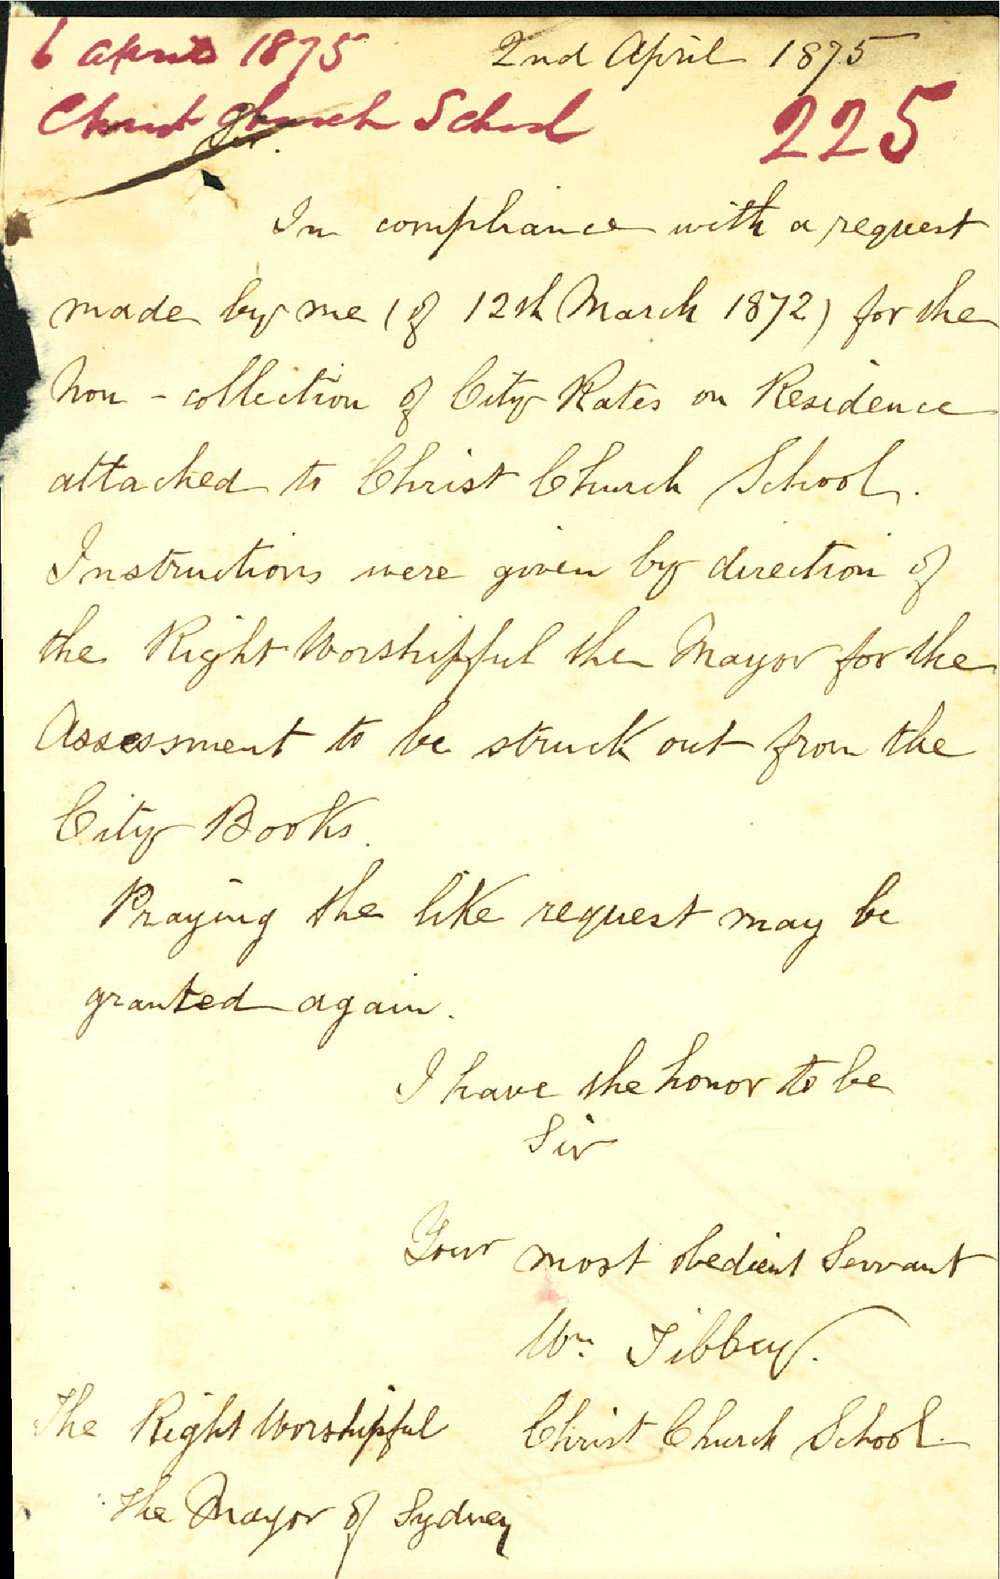 6 April 1875
2nd April 1875
Christ Church School
225
Sir.
In compliance with a request
made by me (of 12th March 1872) for the
Non-collection of City Rates on Residence
attached to Christ Church School.
Instructions were given by direction of
the Right Worshipful the Mayor for the
Assessment to be struck out from the
City Books.
Praying the like request may be
granted again.
I have the honor to be
Sir
Your most obedient Servant
Wm. Tibbey.
The Right Worshipful
Christ Church School
the Mayor of Sydney